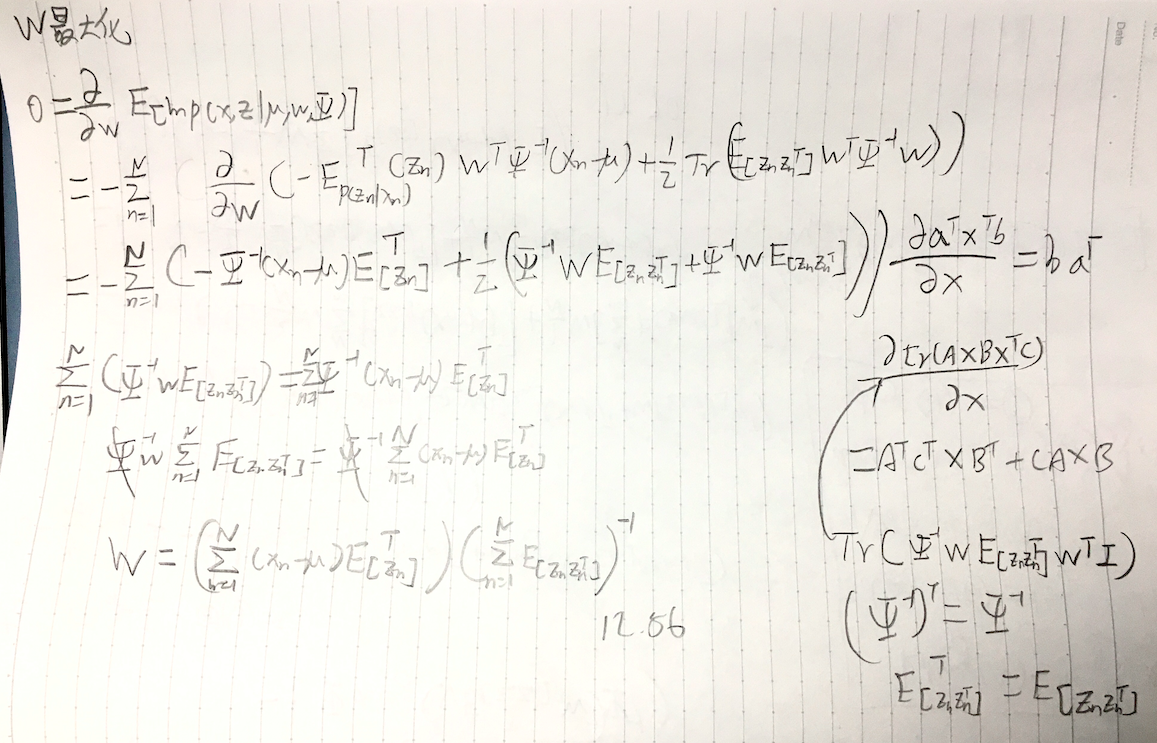 W最大化
0 = ∂/∂W E[ln p(x,z|μ,w,Ψ)]
= -Σ_{n=1}^{N} ∂/∂W (-E^T_{p(z_n|x_n)}(z_n) W^T Ψ^{-1}(x_n-μ) + 1/2 Tr(E[z_n z_n^T] W^T Ψ^{-1} W))
= -Σ_{n=1}^{N} (-Ψ^{-1}(x_n-μ)E^T[z_n] + 1/2 (Ψ^{-1} W E[z_n z_n^T] + Ψ^{-1} W E[z_n z_n^T]))
Σ_{n=1}^{N} (Ψ^{-1} W E[z_n z_n^T]) = Σ_{n=1}^{N} Ψ^{-1} (x_n-μ) E^T[z_n]
Ψ^{-1} W Σ_{n=1}^{N} E[z_n z_n^T] = Ψ^{-1} Σ_{n=1}^{N} (x_n-μ) E^T[z_n]
W = (Σ_{n=1}^{N} (x_n-μ) E^T[z_n]) (Σ_{n=1}^{N} E[z_n z_n^T])^{-1}
12.56
∂a^T x^T b / ∂x = b a^T
∂tr(A X B X^T C) / ∂x
= A^T C^T X B^T + C A X B
Tr(Ψ^{-1} W E[z_n z_n^T] W^T I)
(Ψ^{-1})^T = Ψ^{-1}
E^T[z_n z_n^T] = E[z_n z_n^T]
Date